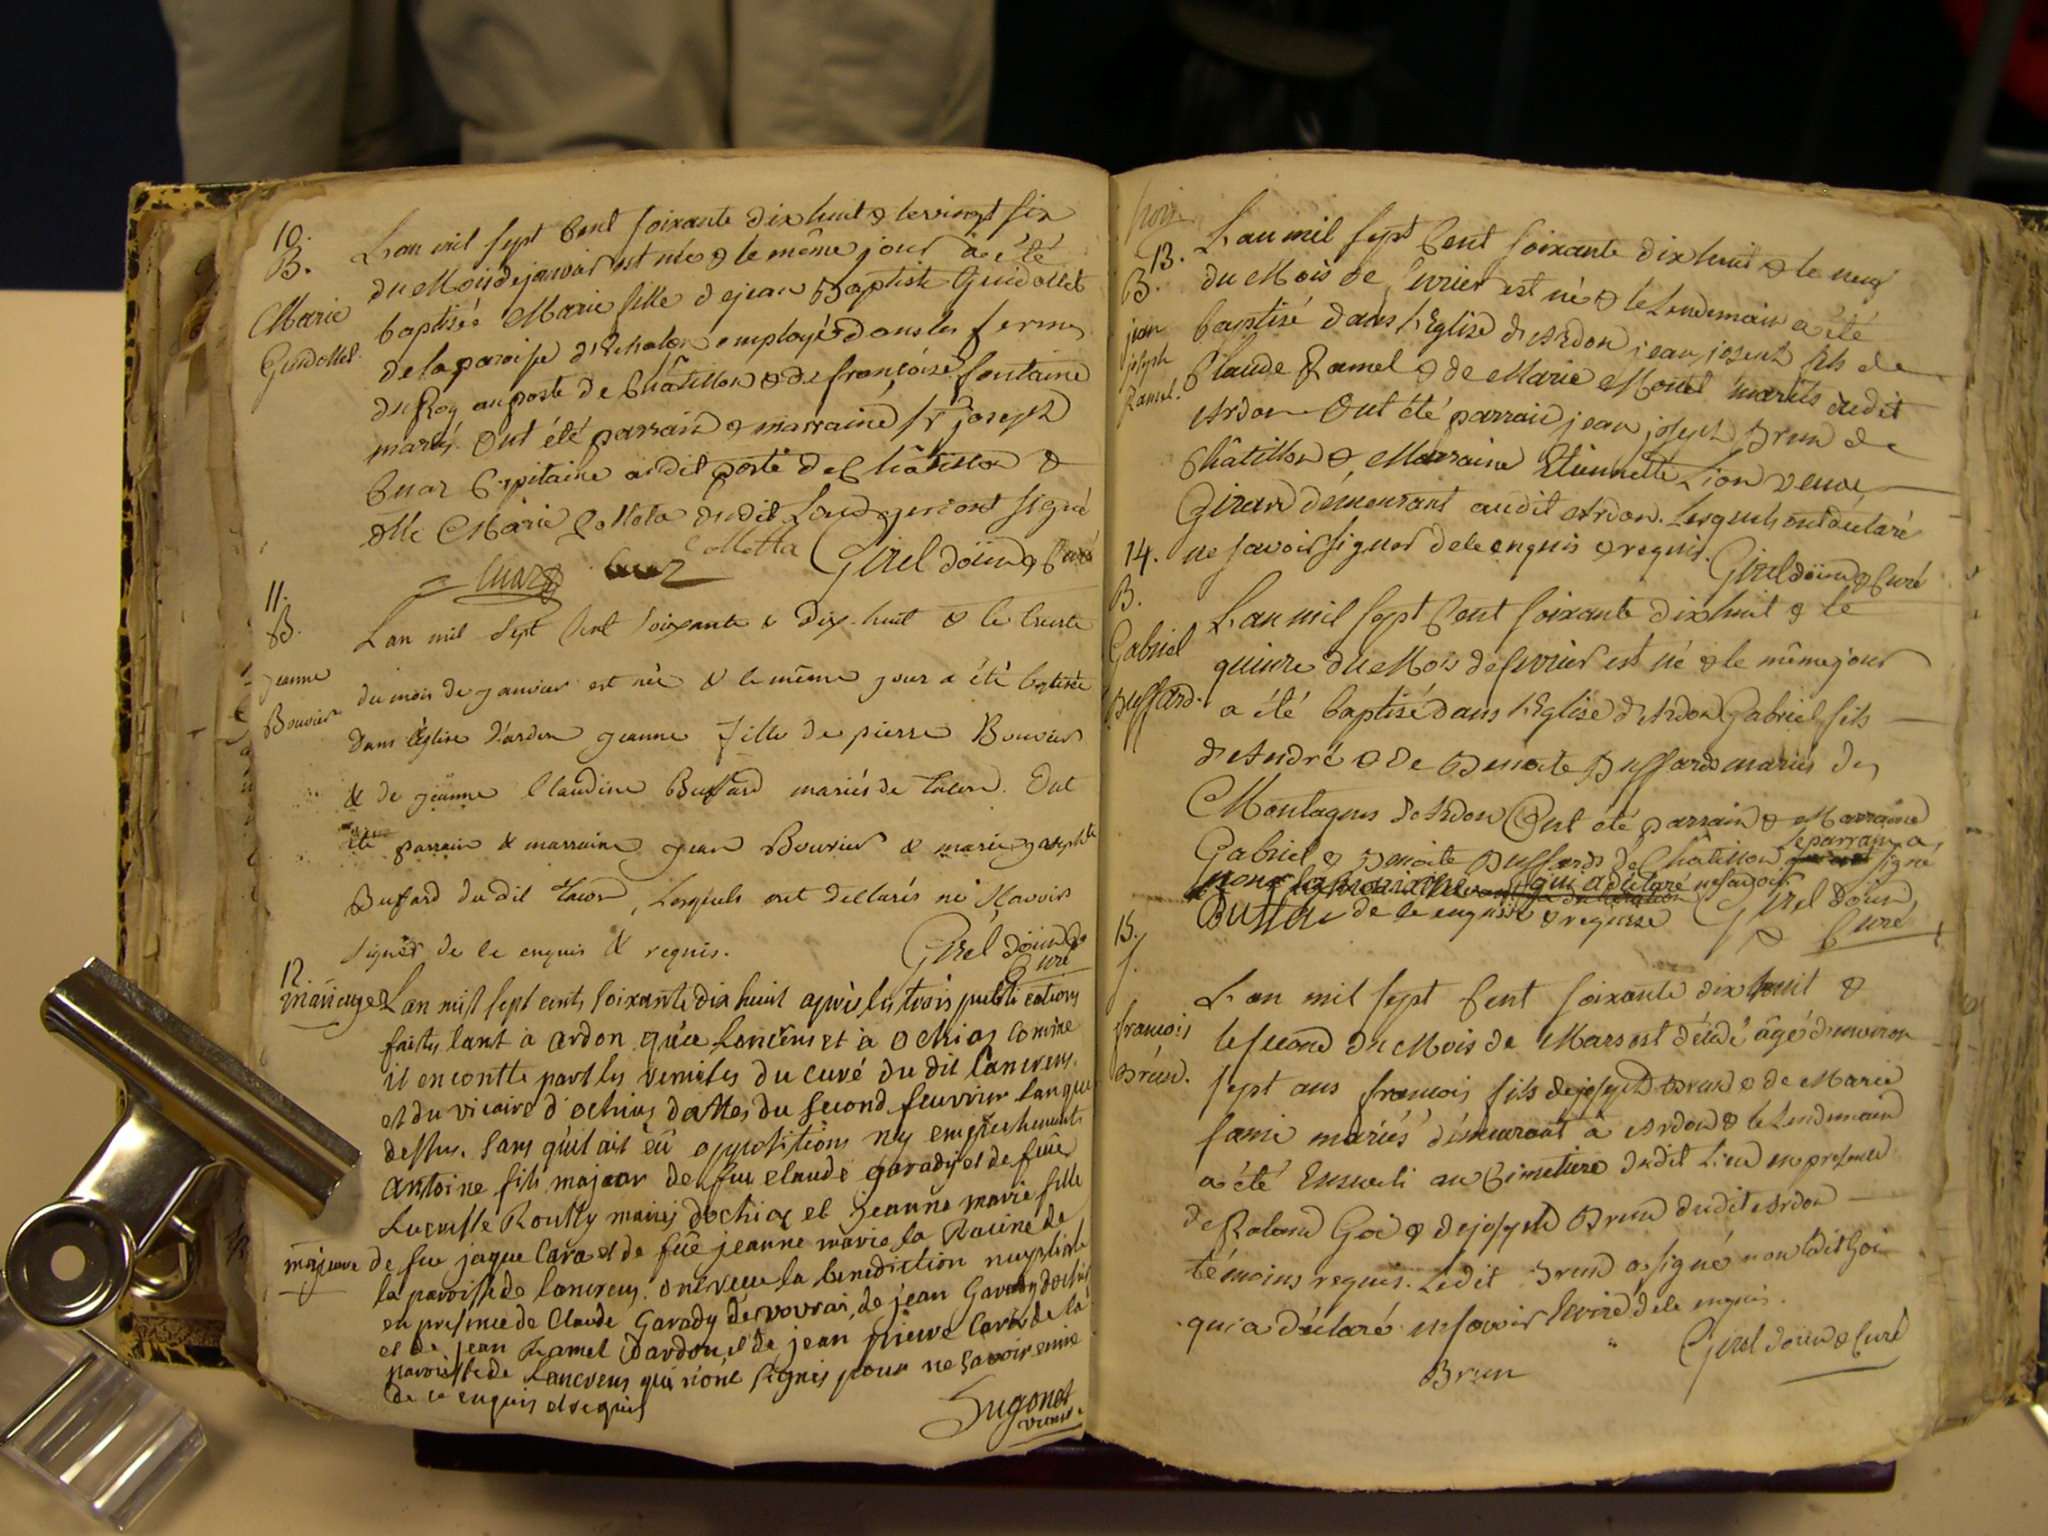 10.
B.
Marie
Guidollet.
L'an mil sept cent soixante dix huit & le vingt six
du Mois de janvier est née & le même jour a été
baptisée Marie fille de jean Baptiste Guidollet
de la paroisse d'Echalon employé dans les fermes
du Roy au poste de Châtillon & de françoise fontaine
mariés. Ont été parrain & marraine Sr joseph
Cuaz Capitaine audit poste de Châtillon &
dlle Marie Colletta dudit Lieu qui ont signé
Cuaz Colletta Girel doüin & Curé
11.
B.
jeanne
Bouvier
L'an mil sept cent soixante & dix huit & le trente
du mois de janvier est née & le même jour a été baptisée
dans l'église d'ardon jeanne fille de pierre Bouvier
& de jeanne Claudine Buffard mariés de Tacon. Ont
été parrain & marraine jean Bouvier & marie josephte
Bufard du dit Tacon, Lesquels ont déclarés ne sçavoir
signer de ce enquis & requis. Girel doüin &
Curé
12.
mariage
L'an mil sept cents soixante dix huit après les trois publications
faittes tant à ardon qu'à Lancrens et à ochiaz comme
il en conste par les remises du curé du dit Lancrens
et du vicaire d'ochiaz dattes du second feuvrier l'an que
dessus. sans qu'il ait eû oppositions ny empeschements
antoine fils majeur de feu claude garady et de feüe
Lucresse Roully mariés d'ochiaz et jeanne marie fille
majeure de feu jaque Caraz et de feüe jeanne marie la Racine de
la paroisse de lancrens. ont receu la benediction nuptiale
en presence de Claude Garady de vovrai, de jean Garady d'ochiaz
et de jean Ramel d'ardon et de jean pierre Caraz de la
paroisse de Lancrens qui n'ont signés pour ne savoir ecrire
de ce enquis et requis
Sugonet
vicaire.
13.
B.
jean
joseph
Ramel.
L'an mil sept Cent soixante dix huit & le neuf
du Mois de fevrier est né & le Lendemain a été
baptisé dans l'Eglise d'Ardon jean joseph fils de
Claude Ramel & de Marie Monet mariés dudit
Ardon Ont été parrain jean joseph Brun de
Châtillon & Marraine Etiennette Lion veuve
Girard demeurant audit Ardon. Lesquels ont déclaré
ne savoir signer de ce enquis & requis.
Girel doüin & Curé
14.
B.
Gabriel
Buffard.
L'an mil sept Cent soixante dix huit & le
quinze du Mois de fevrier est né & le même jour
a été baptisé dans l'Eglise d'Ardon Gabriel fils
d'André & de Benoite Buffard mariés des
Montagnes d'Ardon Ont été parrain & Marraine
Gabriel & Benoite Buffards de Châtillon le parrain a signé
non la marraine qui a déclaré ne savoir
Buffar de ce enquise & requise Girel doüin
& Curé
15.
f.
francois
Brun.
L'an mil sept Cent soixante dix huit &
le second du Mois de Mars est décédé âgé d'environ
sept ans francois fils de joseph Brun & de Marie
fami mariés demeurant à Ardon & le Lendemain
a été Enseveli au Cimetiere dudit Lieu en presence
de Roland Goi & de joseph Brun dudit Ardon
témoins requis. Ledit Brun a signé non ledit Goi
qui a déclaré ne savoir Ecrire de ce enquis.
Brun Girel doüin & Curé